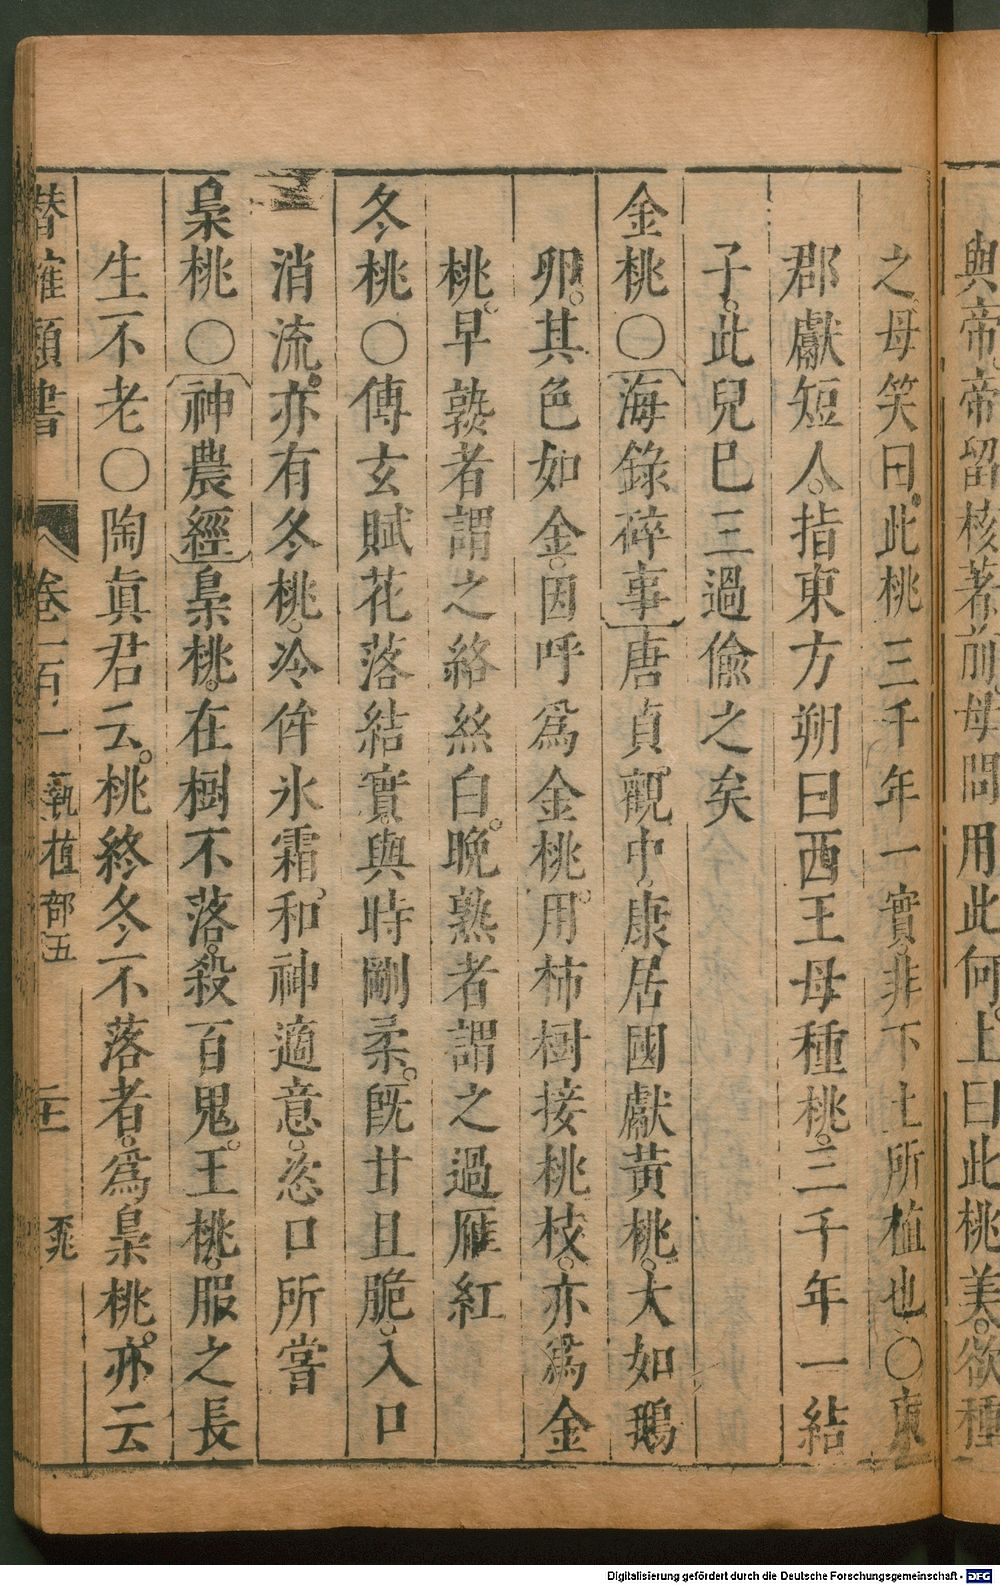 與帝帝留核著前母問用此何。上曰此桃美。欲種
之母笑曰。此桃三千年一實。非下土所植也〇東
郡獻短人。指東方朔曰西王母種桃。三千年一結
子。此兒已三過偷之矣
金桃〇海錄碎事唐貞觀中康居國獻黃桃。大如鵝
卵。其色如金。因呼為金桃。用柿樹接桃枝。亦為金
桃。早熟者謂之絡絲白。晚熟者謂之過雁紅
冬桃〇傳玄賦花落結實與時剛柔。旣甘且脆。入口
消流。亦有冬桃。冷侔氷霜。和神適意。恣口所嘗
梟桃〇神農經梟桃。在樹不落。殺百鬼。王桃。服之長
生不老〇陶眞君云。桃終冬不落者。為梟桃。亦云
潛確類書 卷一百一 藝植部五 二十 兲
Digitalisierung gefördert durch die Deutsche Forschungsgemeinschaft - DFG